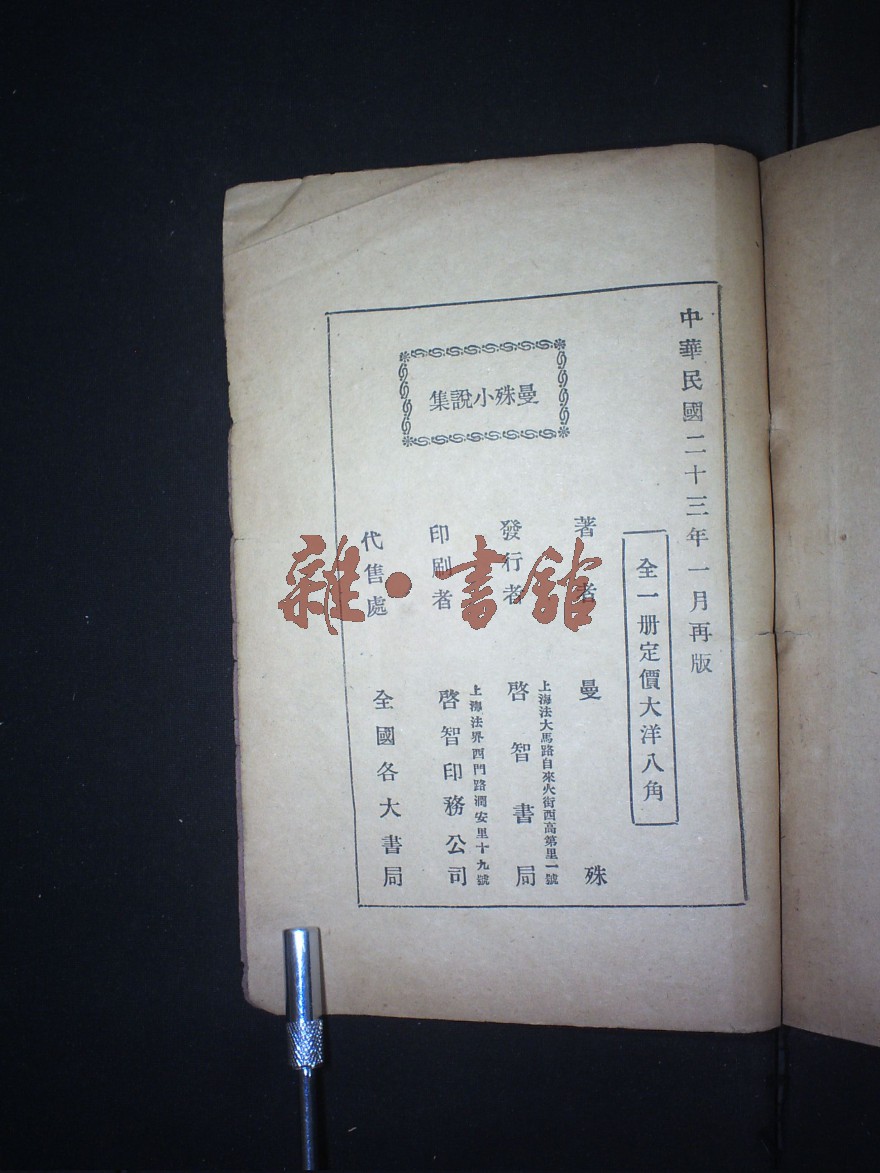 中華民國二十三年一月再版
全一册定價大洋八角
曼殊小說集
著者 曼殊
發行者 啓智書局
上海法大馬路自來火街西高第里一號
印刷者 啓智印務公司
上海法界西門路潤安里十九號
代售處 全國各大書局
雜·書館